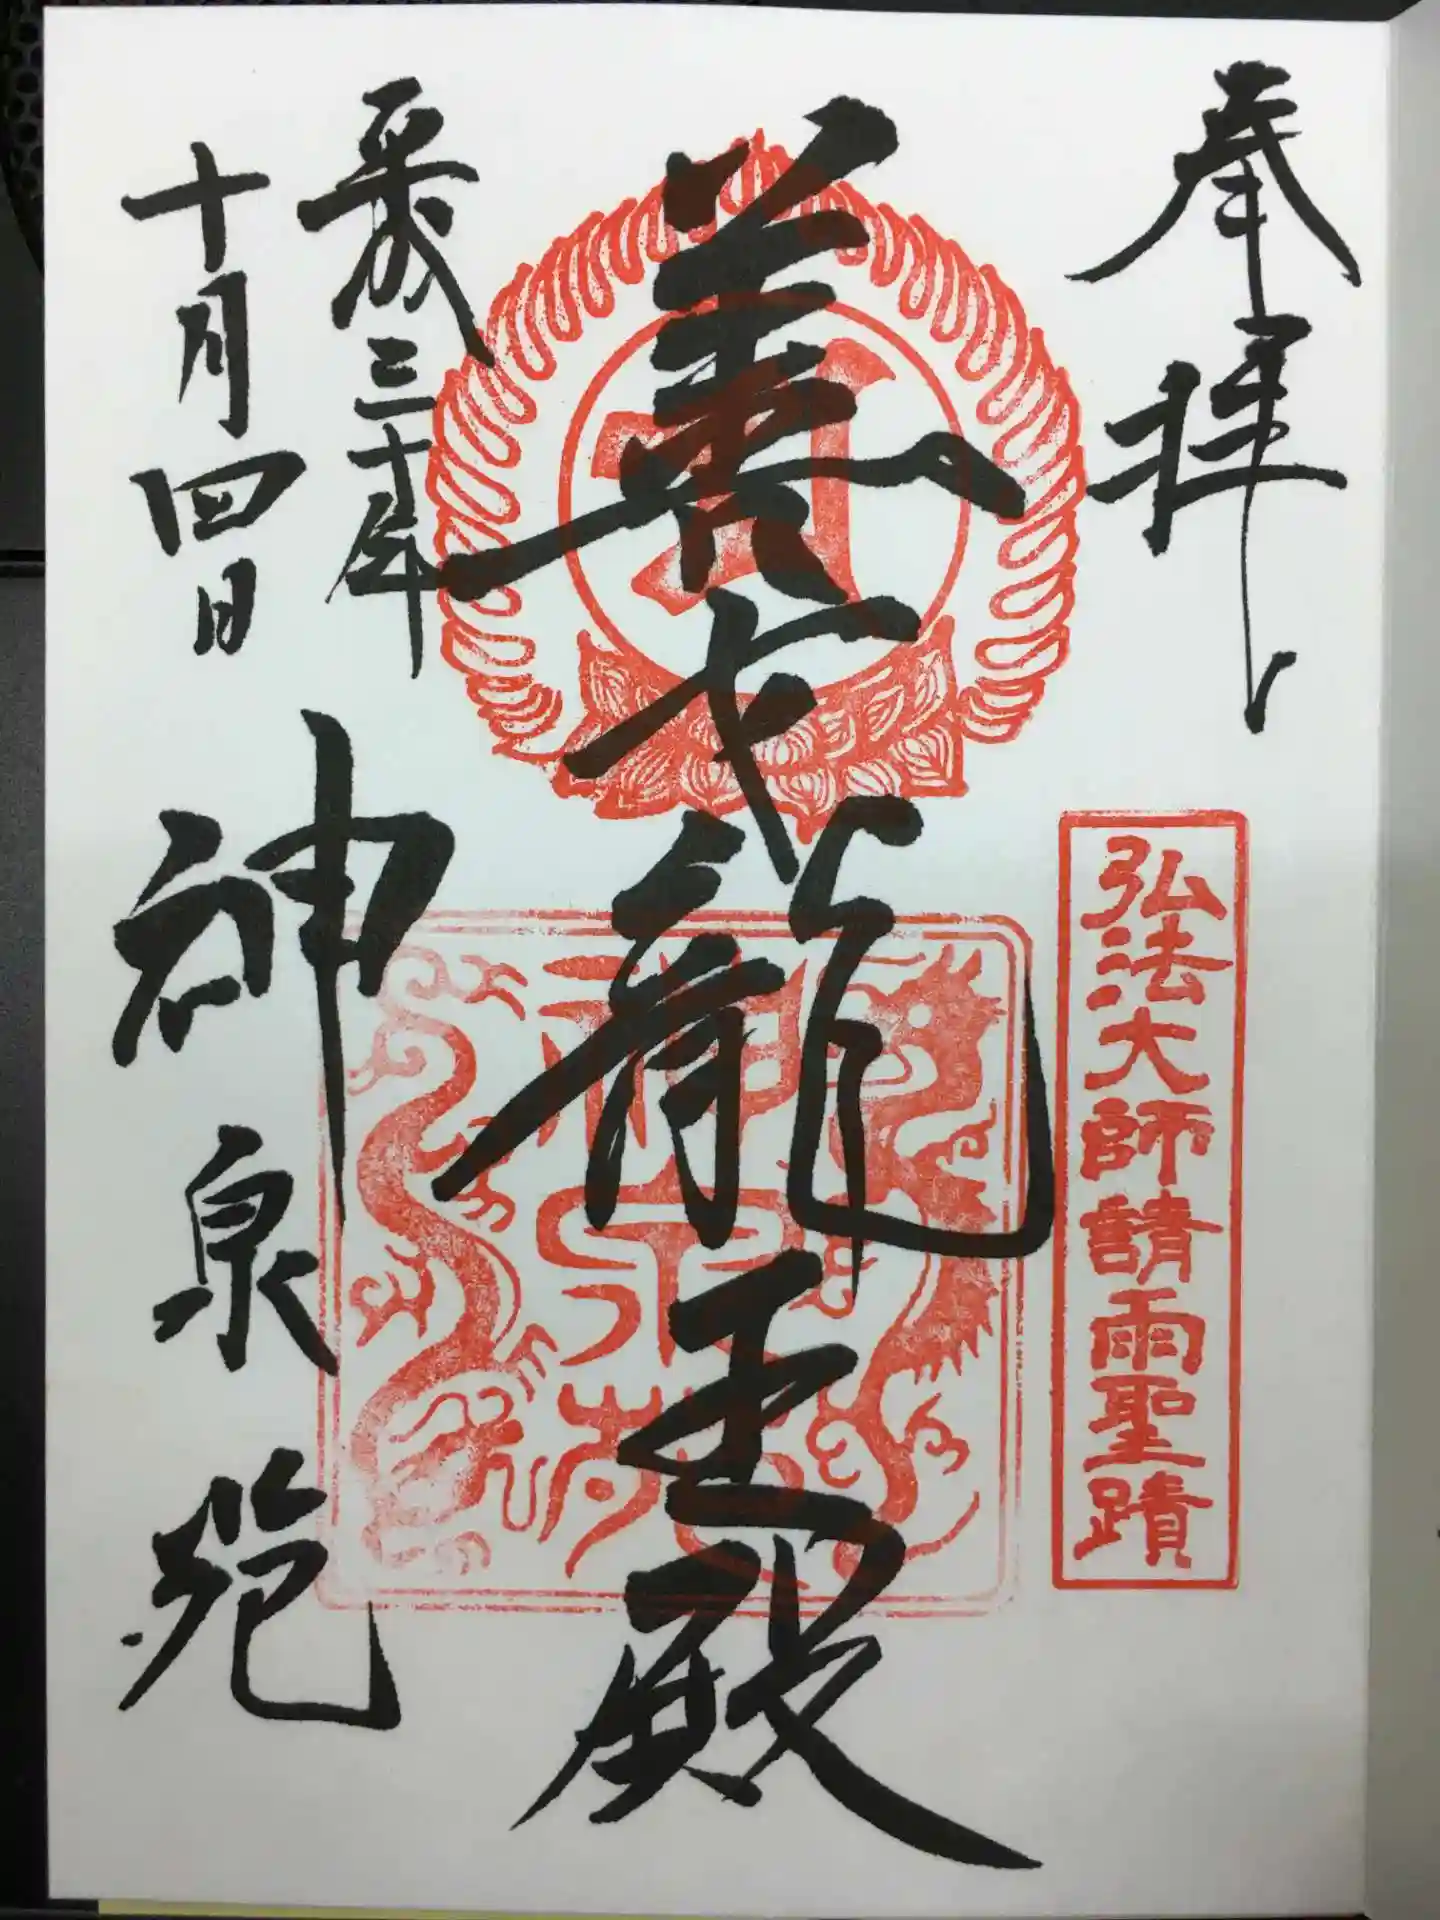 奉拝
弘法大師請雨聖蹟
善女龍王殿
平成三十年
十月四日
神泉苑
神泉苑